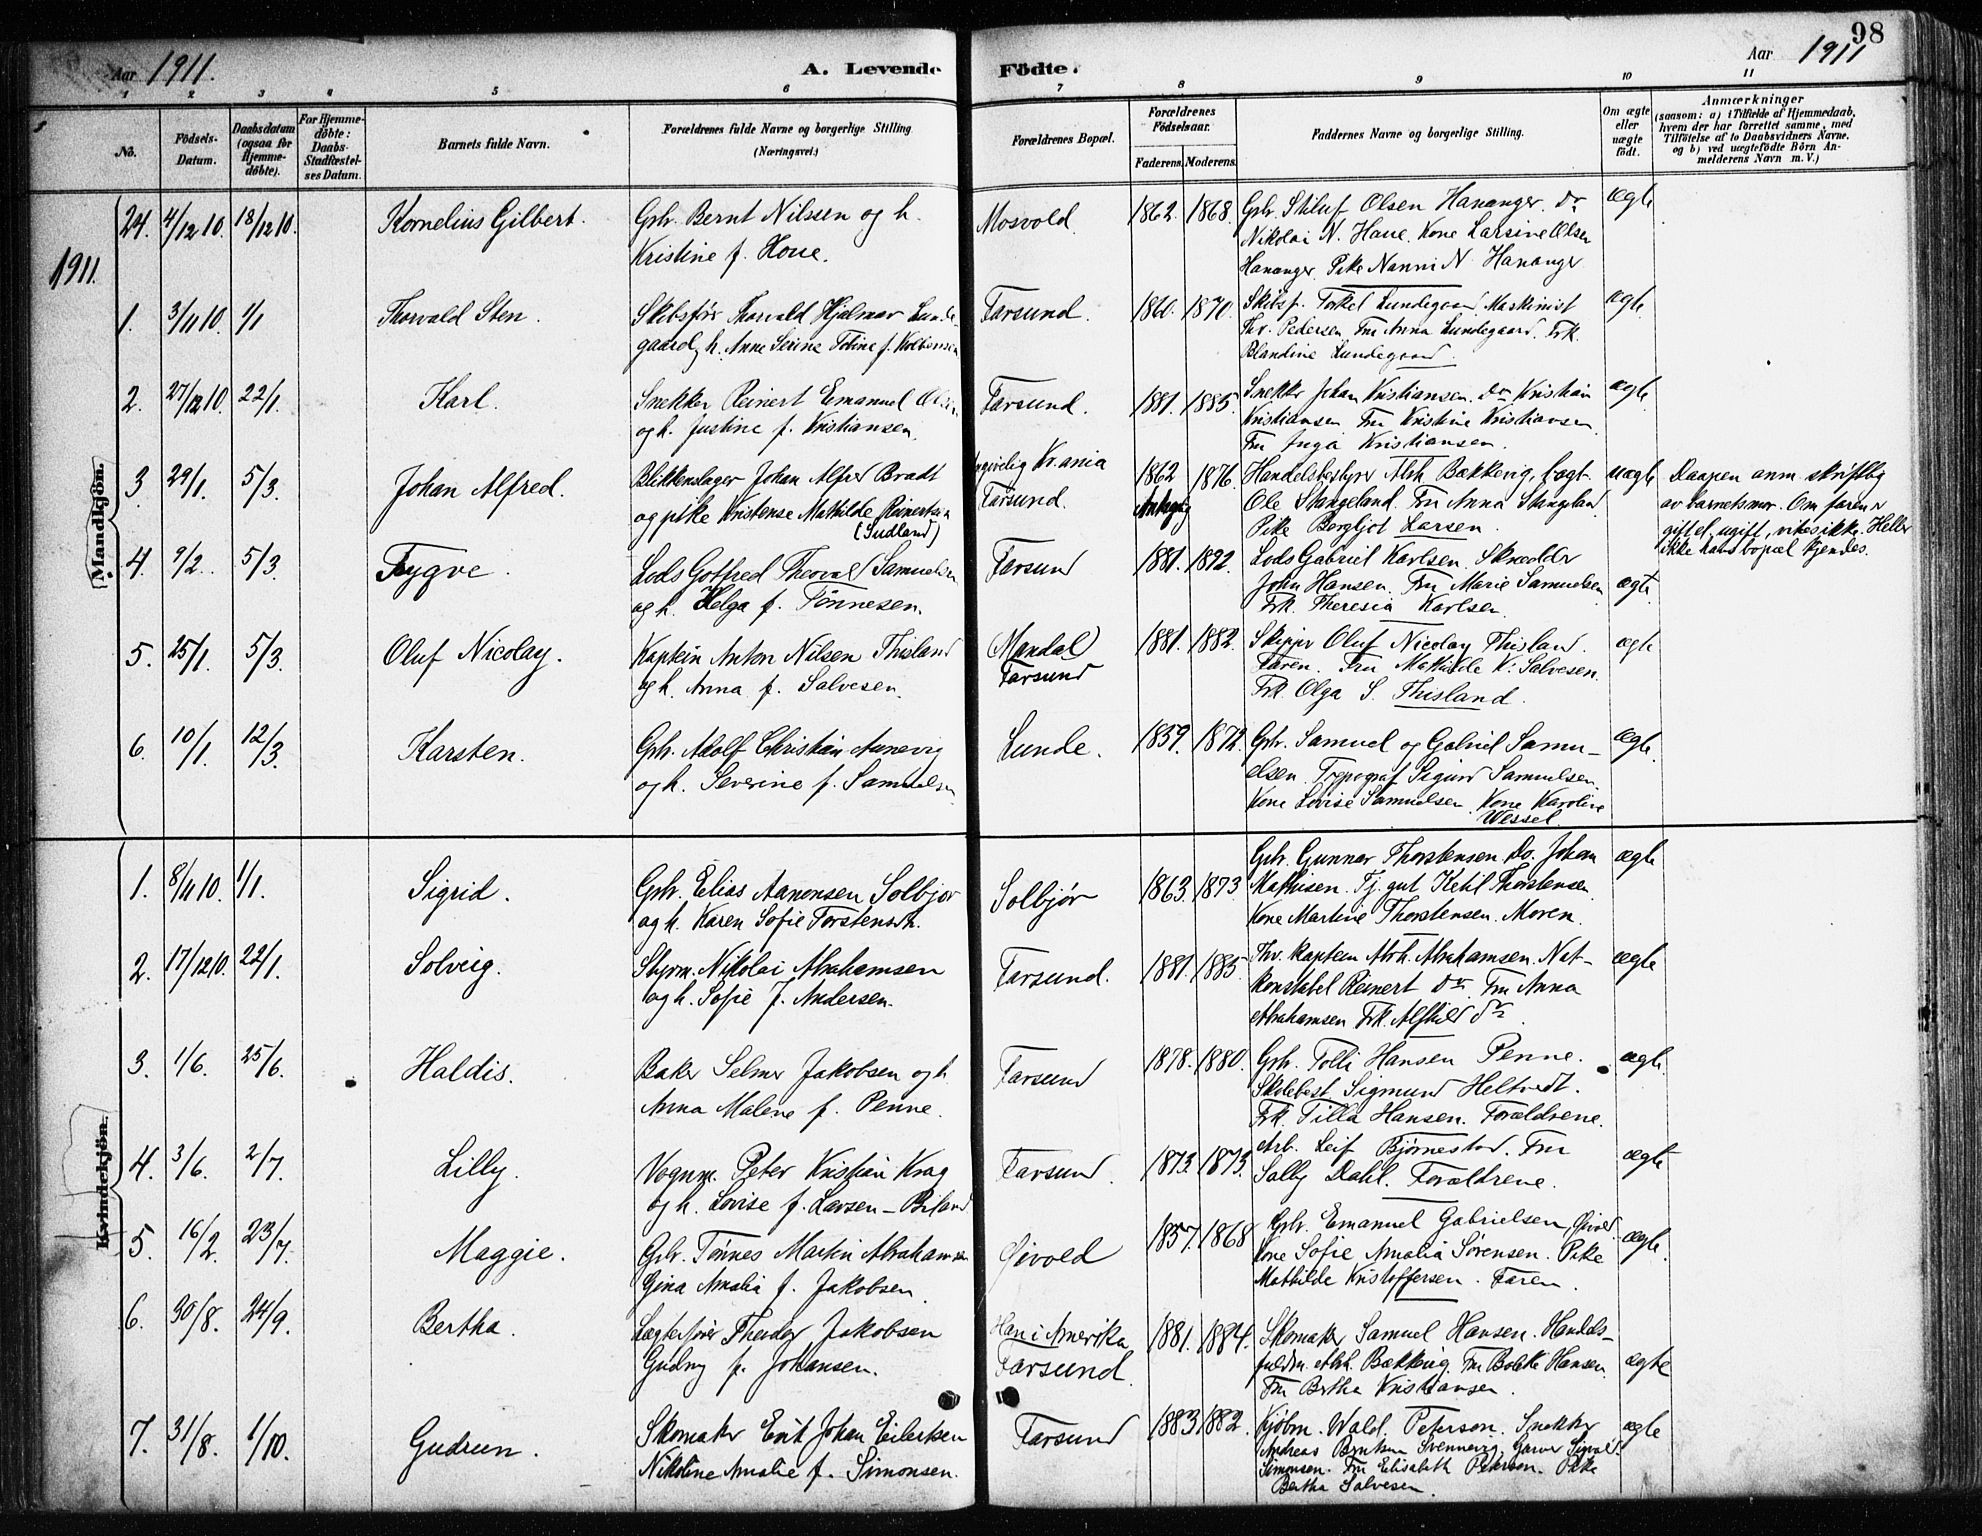 98
Aar 1911. A. Levende Födte. Aar 1911
1 2 3 4 5 6 7 8 9 10 11
No.
Födsels-Datum.
Daabsdatum (ogsaa for Hjemmedöbte).
For Hjemmedöbte: Daabs-Stadfæstelses Datum.
Barnets fulde Navn.
Forældrenes fulde Navne og borgerlige Stilling
(Næringsvei.)
Forældrenes Bopæl.
Forældrenes Födselsaar.
Faderens. Moderens.
Faddernes Navne og borgerlige Stilling.
Om ægte eller uægte födt.
Anmærkninger
(saasom: a) i Tilfælde af Hjemmedaab, hvem der har forrettet samme, med Tilföielse af to Daabsvidners Navne, og b) ved uægtefödte Börn Anmelderens Navn m. V.)
24. 4/12 10. 18/12 10. Kornelius Gilbert. Grb. Bernt Nilssen og h. Mosvold 1862. 1868. Grb. Stiluf Olsen Hananger. Do ægte
Kristine f. Houe. Nikolai N. Haue. Kone Larsine Olsen
Hananger. Pike Nanni N. Hananger
1911.
1. 3/11 10. 1/1 Thorvald Sten. Skibsfør Thorvald Hjalmar Lunde- Farsund. 1860. 1870. Skibsf. Torkel Lundegaard Maskinist ægte
gaard, h. Anne Serine Tobine f. Kolbensen Thv. Pedersen Fru Anna Lundegaard. Frk.
Blandine Lundegaard
2. 27/12 10. 22/1. Karl. Snekker Reinert Emanuel Olsen Farsund. 1881. 1885. Snekkr Johan Kristiansen. Do Kristian ægte
og h. Justine f. Kristiansen. Kristiansen Fru Kristine Kristiansen
Fru Inga Kristiansen.
Mandkjön.
3 29/1. 5/3. Johan Alfred. Blikkenslager Johan Alfred Bratt Kr.ania 1862 1876. Handelsbestyrer Abh. Bækkevig, uægte Daapen anm. skriftlig
og pike Kristense Mathilde Reinertsen Farsund. Ole Stangeland. Fru Anna Stangeland av barnets mor. Om faren er
(Sudland) Pike Bergljot Larsen. gift el. ugift, vites ikke. Heller
ikke hans bopæl kjendes.
4. 9/2 5/3. Tygve. Lods Gotfred Theoval Samuelsen Farsund 1881. 1892. Lods Gabriel Karlsen. Skrædder
og h. Helga f. Tønnesen. John Hansen. Fru Marie Samuelsen ægte.
Frk. Theresia Karlsen.
5. 25/1. 5/3. Oluf Nicolay. Kaptein Anton Nilsen Thisland Mandal 1881. 1882. Skipper Oluf Nicolay Thisland. ægte
og h. Anna f. Salvesen. Farsund Faren. Fru Mathilde K. Salvesen.
Frk Olga S. Thisland.
6. 10/1. 12/3. Karsten. Grb. Adolf Christian Aunevig Lunde. 1859. 1872. Grb. Samuel og Gabriel Samu- ægte.
og h. Severine f. Samuelsen elsen. Typograf Sigurd Samuelsen.
Kone Lovise Samuelsen Kone Karoline
Wessel.
Kvindekjön.
1. 8/11 10. 1/1. Sigrid. Grb. Elias Aanonsen Solbjør Solbjør 1863. 1873. Grb. Gunnar Thorstensen Do. Johan ægte
og h. Karen Sofie Torstensdt. Mathisen. Tj. gut Ketil Thorstensen
Kone Martine Thorstensen. Moren.
2. 17/12 10. 22/1. Solveig. Styrm. Nikolai Abrahamsen Farsund. 1881. 1885. Thv. kaptein Abrh. Abrahamsen. Nat- ægte
og h. Sofie f. Andersen. konstabel Reinert Do. Fru Anna
Abrahamsen Frk. Alfhild do
3. 1/6. 25/6. Haldis. Baker Selmer Jakobsen og h. Farsund 1878. 1880. Grb. Tolli Hansen Penne. ægte.
Anna Malene f. Penne. Skolebest Sigmund Heltvedt.
Frk. Tilla Hansen. Forældrene.
4. 3/6. 2/7. Lilly. Vognm. Peter Kristian Krag Farsund. 1873. 1873. Arb. Leif Bjørnestad. Fru ægte
og h. Lovise f. Larsen-Biland Sally Dahl. Forældrene.
5. 16/2. 23/7. Maggie. Grb. Tønnes Martin Abrahamsen Øivold 1857. 1868 Grb. Emanuel Gabrielsen, Øivold ægte.
Gina Amalia f. Jakobsen. Kone Sofie Amalia Sørensen. Pike
Mathilde Kristoffersen. Faren.
6. 30/8. 24/9. Bertha. Lægterfører Theodor Jakobsen Han i Amerika 1881. 1884. Skomaker Samuel Hansen. Handels-
Gudny f. Johansen. Farsund. fuldm. Abh. Bækkevig. Fru Bolette Hansen ægte
Fru Bertha Kristiansen.
7. 31/8. 1/10. Gudrun. Skomaker Erik Johan Eilertsen Farsund 1883 1882. Kjøbm. Wald. Peterson. Snekker ægte
Nikoline Amalie f. Simonsen. Andreas Berntsen Svennevig, Garver Sigvald
Simonsen. Fru Elisabeth Peterson. Pike
Bertha Salvesen.